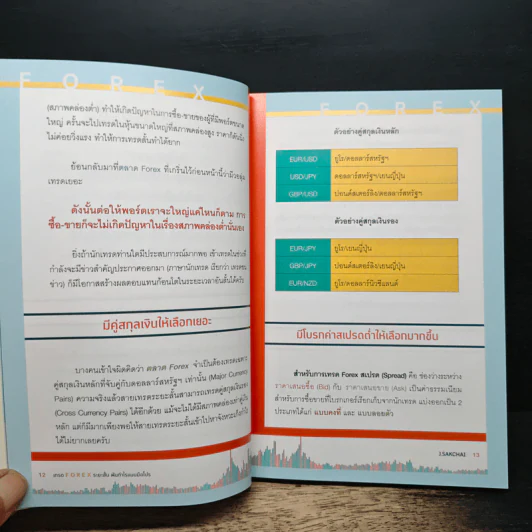 FOREX
(สภาพคล่องต่ำ) ทำให้เกิดปัญหาในการซื้อ-ขายของผู้ที่มีพอร์ตขนาด
ใหญ่ ครั้นจะไปเทรดในหุ้นขนาดใหญ่ที่สภาพคล่องสูง ราคาก็ดันนิ่ง
ไม่ค่อยวิ่งแรง ทำให้การเทรดสั้นทำได้ยาก
ย้อนกลับมาที่ตลาด Forex ที่เกริ่นไว้ก่อนหน้านี้ว่ามีวอลุ่ม
เทรดเยอะ
ดังนั้นต่อให้พอร์ตเราจะใหญ่แค่ไหนก็ตาม การ
ซื้อ-ขายก็จะไม่เกิดปัญหาในเรื่องสภาพคล่องต่ำนั่นเอง
ยิ่งถ้านักเทรดท่านใดมีประสบการณ์มากพอ เข้าเทรดในช่วงที่
กำลังจะมีข่าวสำคัญประกาศออกมา (ภาษานักเทรด เรียกว่า เทรดชน
ข่าว) ก็มีโอกาสสร้างผลตอบแทนก้อนโตในระยะเวลาอันสั้นได้ครับ
มีคู่สกุลเงินให้เลือกเยอะ
บางคนเข้าใจผิดคิดว่า ตลาด Forex จำเป็นต้องเทรดเฉพาะ
คู่สกุลเงินหลักที่จับคู่กับดอลลาร์สหรัฐฯ เท่านั้น (Major Currency
Pairs) ความจริงแล้วสายเทรดระยะสั้นสามารถเทรดคู่สกุลเงินรอง
(Cross Currency Pairs) ได้อีกด้วย แม้จะไม่ได้มีสภาพคล่องเท่าคู่เงิน
หลัก แต่ก็มีมากเพียงพอให้สายเทรดระยะสั้นเข้าไปหาจังหวะเก็งกำไร
ได้ไม่ยากเลยครับ
12 เทรด FOREX ระยะสั้น
FOREX
ตัวอย่างคู่สกุลเงินหลัก
EUR/USD ยูโร/ดอลลาร์สหรัฐฯ
USD/JPY ดอลลาร์สหรัฐฯ/เยนญี่ปุ่น
GBP/USD ปอนด์สเตอร์ลิง/ดอลลาร์สหรัฐฯ
ตัวอย่างคู่สกุลเงินรอง
EUR/JPY ยูโร/เยนญี่ปุ่น
GBP/JPY ปอนด์สเตอร์ลิง/เยนญี่ปุ่น
EUR/NZD ยูโร/ดอลลาร์นิวซีแลนด์
มีโบรกค่าสเปรดต่ำให้เลือกมากขึ้น
สำหรับการเทรด Forex สเปรด (Spread) คือ ช่องว่างระหว่าง
ราคาเสนอซื้อ (Bid) กับ ราคาเสนอขาย (Ask) เป็นค่าธรรมเนียม
สำหรับการซื้อขายที่โบรกเกอร์เรียกเก็บจากนักเทรด แบ่งออกเป็น 2
ประเภทได้แก่ แบบคงที่ และ แบบลอยตัว
J.SAKCHAI 13